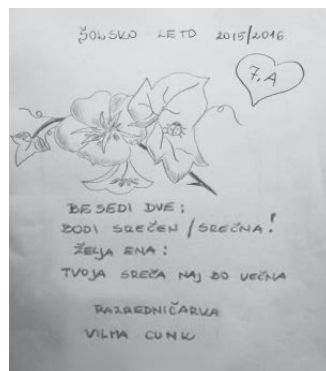 ŠOLSKO LETO 2015/2016
7.A
BESEDI DVE:
BODI SREČEN/SREČNA!
ŽELJA ENA:
TVOJA SREČA NAJ BO VEČNA
RAZREDNIČARKA
VILMA CUNK